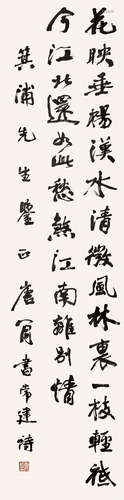 花映垂楊漢水清微風林裏一枝輕祗
今江北還如此愁煞江南離別情
箕浦先生鑒正 唐肯書常建詩